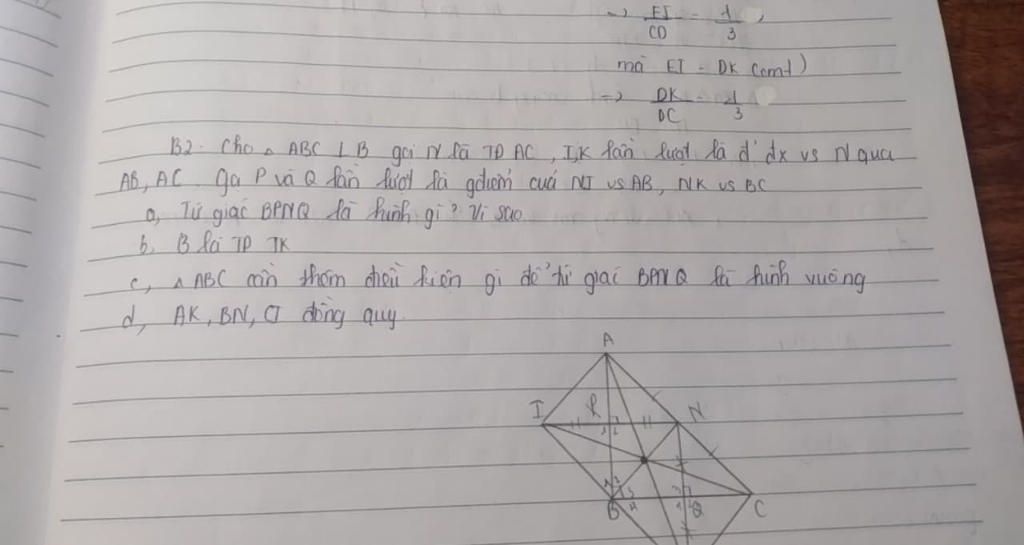 => EI/CD = 1/3
mà EI = DK (cmt)
=> DK/DC = 1/3
B2. Cho △ ABC ⊥ B gọi N là TĐ AC, I,K lần lượt là đ' đx vs N qua
AB, AC. Gọi P và Q lần lượt là gđiểm của NI vs AB, NK vs BC
a, Tứ giác BPNQ là hình gì? Vì sao
b, B là TĐ IK
c, △ ABC cần thêm điều kiện gì để tứ giác BPNQ là hình vuông
d, AK, BN, CI đồng quy
A
I P N
B Q C